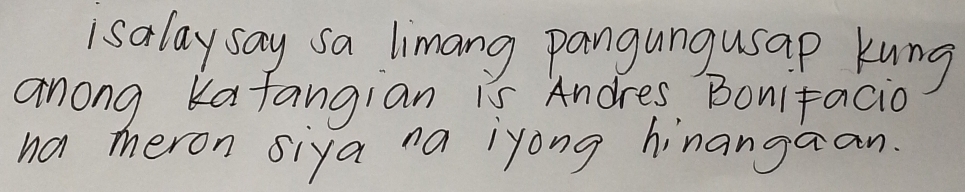 isalaysay sa limang pangungusap kung
anong katangian is Andres Bonifacio
na meron siya na iyong hinangaan.